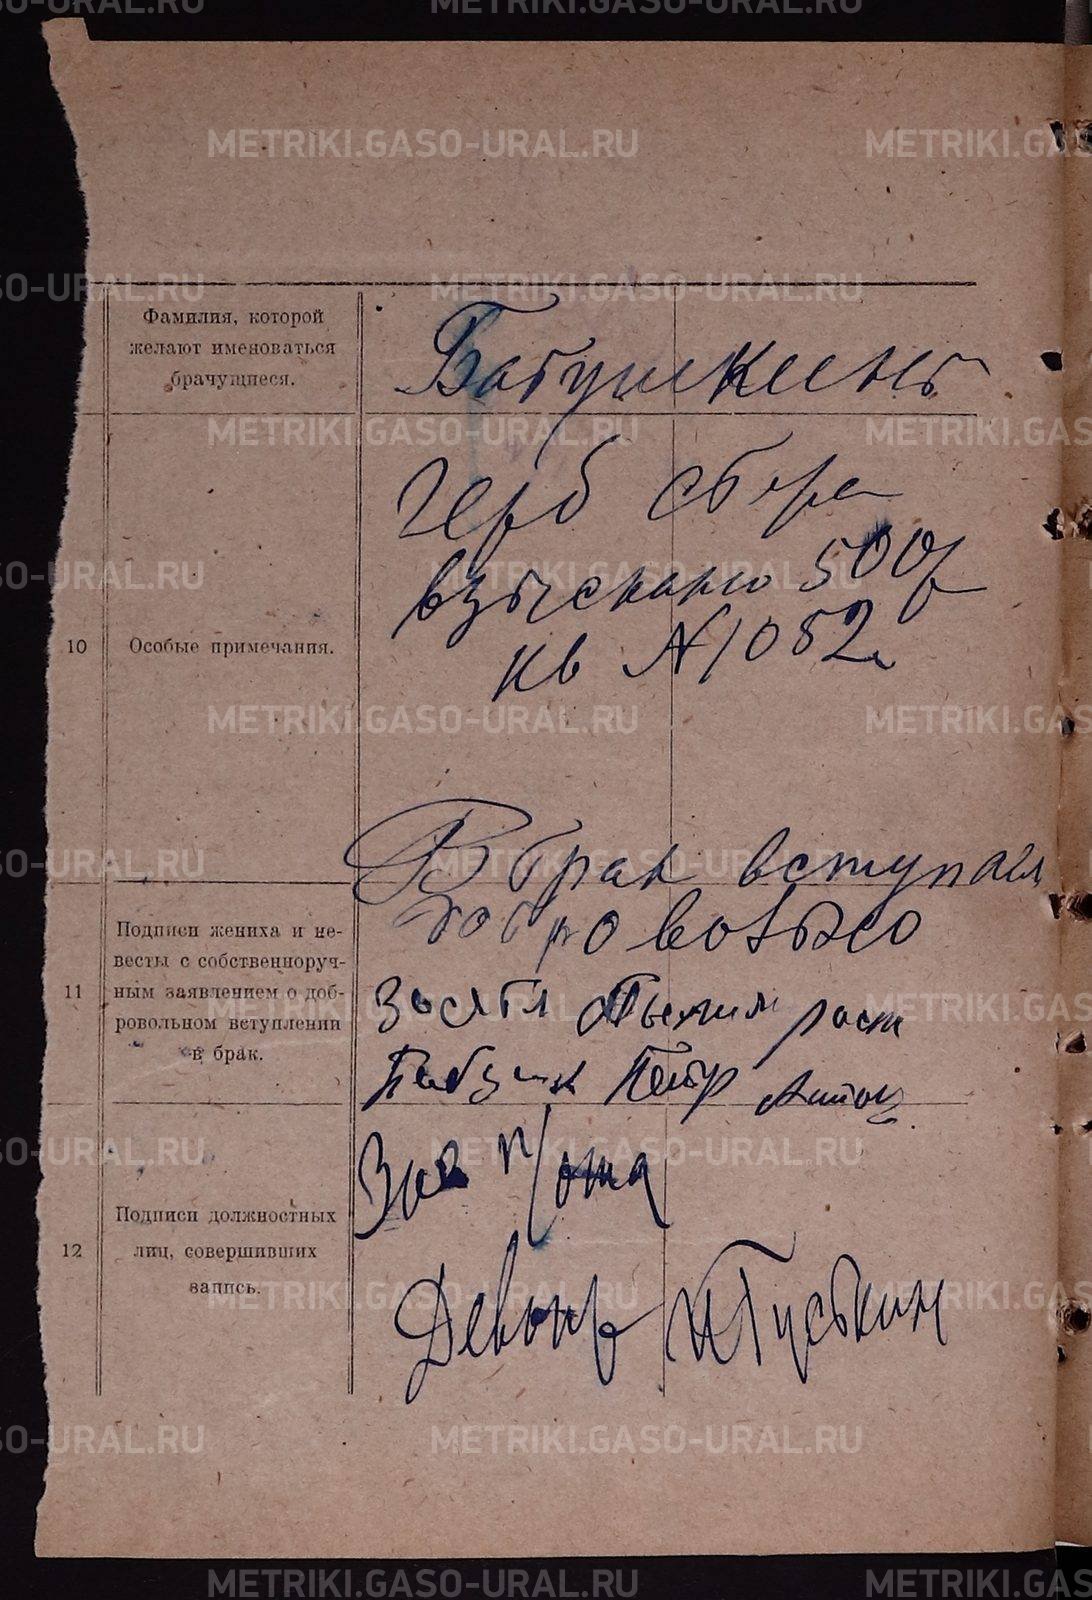 METRIKI.GASO-URAL.RU
Фамилия, которой
желают именоваться
брачущиеся.
Бабушкины
10
Особые примечания.
Герб сбора
взыскано 500р
кв №1082
11
Подписи жениха и не-
весты с собственноруч-
ным заявлением о доб-
ровольном вступлении
в брак.
В брак вступаем
добровольно
Бабушк Петр Антон
12
Подписи должностных
лиц, совершивших
запись.
Зав п/отд
Делопр